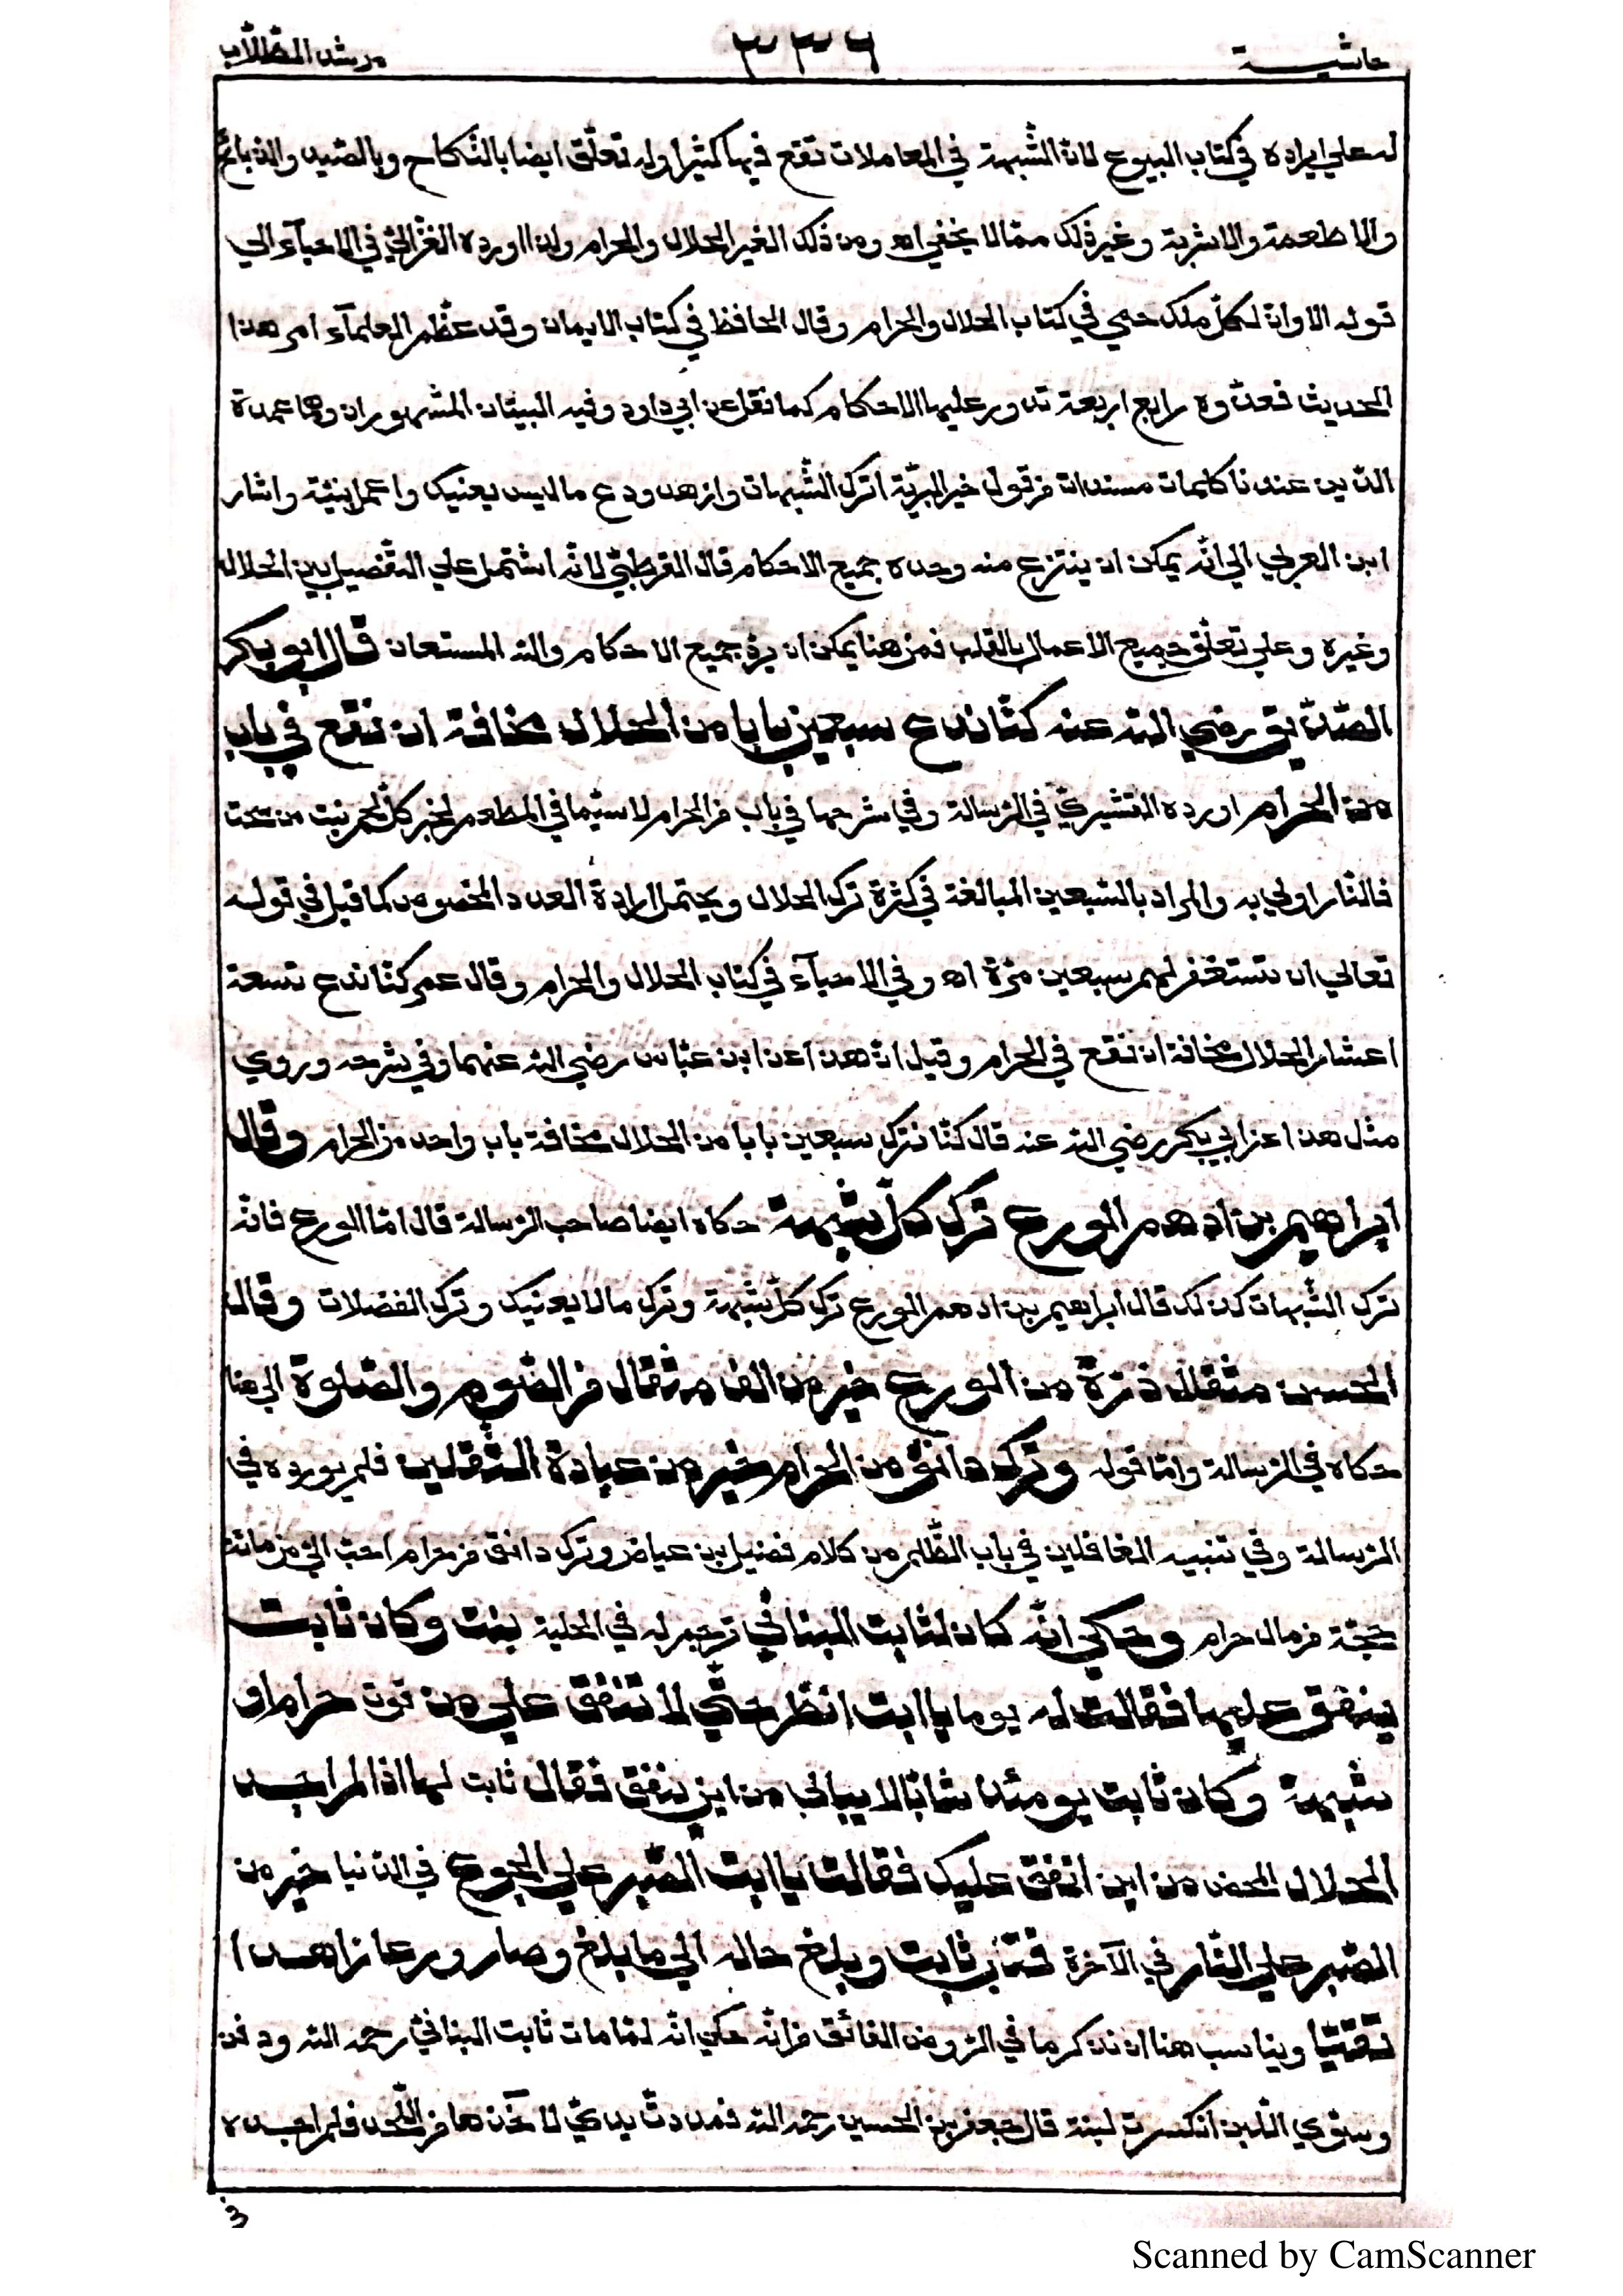 حاشية ٣٣٦ مرشد الطلاب
له علي ايراده في كتاب البيوع لان الشبهة في المعاملات تقع فيها كثيرا وله تعلق ايضا بالنكاح وبالصيد والذبائح
والاطعمة والاشربة وغير ذلك ممّا لا يخفي اه ومن ذلك الغير الحلال والحرام ولذا اورده الغزالي في الاحيآء الي
قوله الا وانّ لكلّ ملك حمي في كتاب الحلال والحرام وقال الحافظ في كتاب الايمان وقد عظّم العلمآء امر هذا
الحديث فعدّوه رابع اربعة تدور عليها الاحكام كما نقل عن ابي داود وفيه البيتان المشهوران وهما عمدة
الدّين عندنا كلمات مسندات من قول خير البريّة اترك الشّبهات وازهد ودع ما ليس يعنيك واعمل بنيّة واشار
ابن العربي الي انّه يمكن ان ينتزع منه وحده جميع الاحكام قال القرطبيّ لانّه اشتمل علي التّفصيل بين الحلال
وغيره وعلي تعلّق جميع الاعمال بالقلب فمن هنا يمكن ان يردّ جميع الاحكام والله المستعان قال ابو بكر
الصّدّيق رضي الله عنه كنّا ندع سبعين بابا من الحلال مخافة ان نقع في باب
من الحرام اورده القشيريّ في الرّسالة وفي شرحها في باب من الحرام لا سيّما في المطعم لخبر كلّ لحم نبت من سحت
فالنّار اولي به والمراد بالسّبعين المبالغة في كثرة ترك الحلال ويحتمل ارادة العدد المخصوص كما قيل في قوله
تعالي ان تستغفر لهم سبعين مرّة اه وفي الاحيآء في كتاب الحلال والحرام وقال عمر كنّا ندع تسعة
اعشار الحلال مخافة ان نقع في الحرام وقيل انّ هذا عن ابن عبّاس رضي الله عنهما وفي شرحه وروي
مثل هذا عن ابي بكر رضي الله عنه قال كنّا نترك سبعين بابا من الحلال مخافة باب واحد من الحرام وقال
ابراهيم بن ادهم الورع ترك كلّ شبهة حكاه ايضا صاحب الرّسالة قال امّا الورع فانّه
ترك الشّبهات كذلك قال ابراهيم بن ادهم الورع ترك كلّ شبهة وترك ما لا يعنيك وترك الفضلات وقال
الحسن مثقال ذرّة من الورع خير من الف مثقال من الصّوم والصّلوة الي هنا
حكاه في الرّسالة وامّا قوله وترك دانق من الحرام خير من عبادة الثّقلين فلم يورده في
الرّسالة وفي تنبيه الغافلين في باب الظّلم من كلام فضيل بن عياض وترك دانق من حرام احبّ اليّ من مائة
حجّة من مال حرام وحكي انّه كان لثابت البنانيّ ترجم له في الحلية بنت وكان ثابت
ينفق عليها فقالت له يوما يا ابت انظر حتّي لا تنفق علي من قوت حرام او
شبهة وكان ثابت يومئذ شابّا لا يبالي من اين ينفق فقال ثابت لها اذا لم اجد
الحلال المحض من اين انفق عليك فقالت يا ابت الصّبر علي الجوع في الدّنيا خير من
الصّبر علي النّار في الآخرة فتاب ثابت وبلغ حاله الي ما بلغ وصار ورعا زاهدا
تقيّا ويناسب هنا ان نذكر ما في الرّوض الفائق من انّه حكي انّه لمّا مات ثابت البنانيّ رحمه الله ودفن
وسوّي اللّبن انكسرت لبنة قال جعفر بن الحسين رحمه الله فمددتّ يديّ لآخذها من اللّحد فلم اجده
Scanned by CamScanner